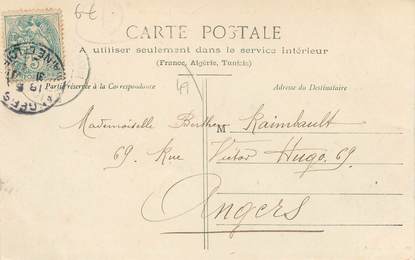 6€
CARTE POSTALE
A utiliser seulement dans le service intérieur
(France, Algérie, Tunisie)
Partie réservée à la Correspondance
Adresse du Destinataire
49
Mademoiselle Berthe M Raimbault
69. Rue Victor Hugo. 69
Angers